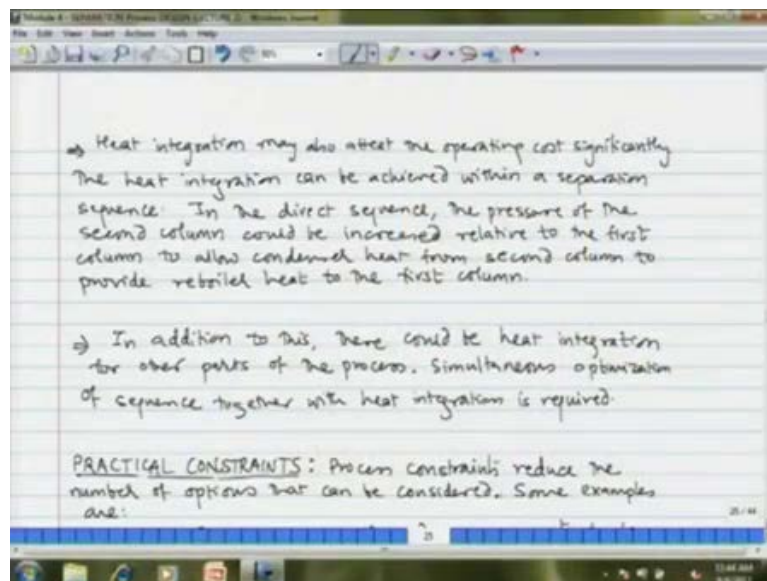 Module 4 - SEPARATION Process DESIGN (LECTURE 2) - Windows Journal
File Edit View Insert Actions Tools Help
⇒ Heat integration may also affect the operating cost significantly
The heat integration can be achieved within a separation
sequence. In the direct sequence, the pressure of the
second column could be increased relative to the first
column to allow condenser heat from second column to
provide reboiler heat to the first column.
⇒ In addition to this, there could be heat integration
for other parts of the process. Simultaneous optimization
of sequence together with heat integration is required.
PRACTICAL CONSTRAINTS: Process constraints reduce the
number of options that can be considered. Some examples
are:
25 / 44
25
11:44 AM